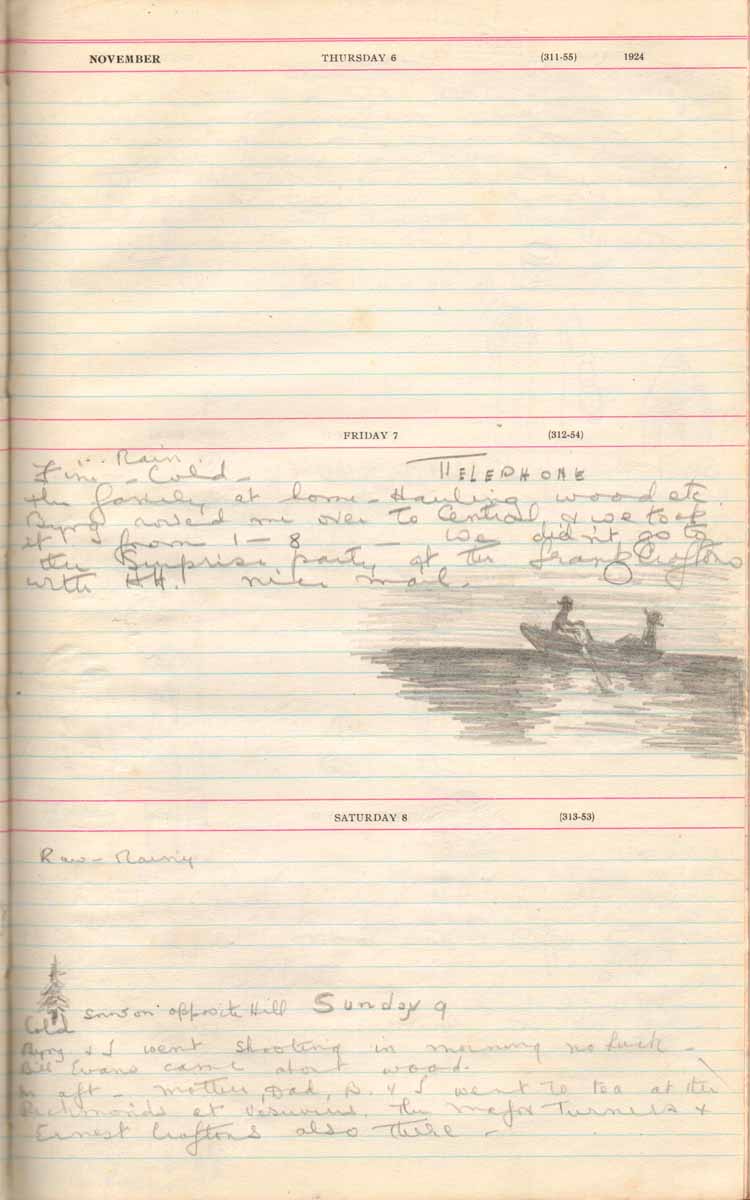 NOVEMBER THURSDAY 6 (311-55) 1924
FRIDAY 7 (312-54)
Rain
Fine - Cold - TELEPHONE
the family at home - Hauling wood etc
Byng rowed me over to Central & we took
it from 1 - 8 — we didn't go to
the Surprise party at the Frank Croftons
with HH! nice mail.
SATURDAY 8 (313-53)
Raw - Rainy
Cold snow on opposite Hill Sunday 9
Byng & I went shooting in morning no luck -
Bill Evans came about wood.
In aft - Mother, Dad, B. & I went to tea at the
Richmonds at Vesuvius. the Major Turners &
Ernest Croftons also there -